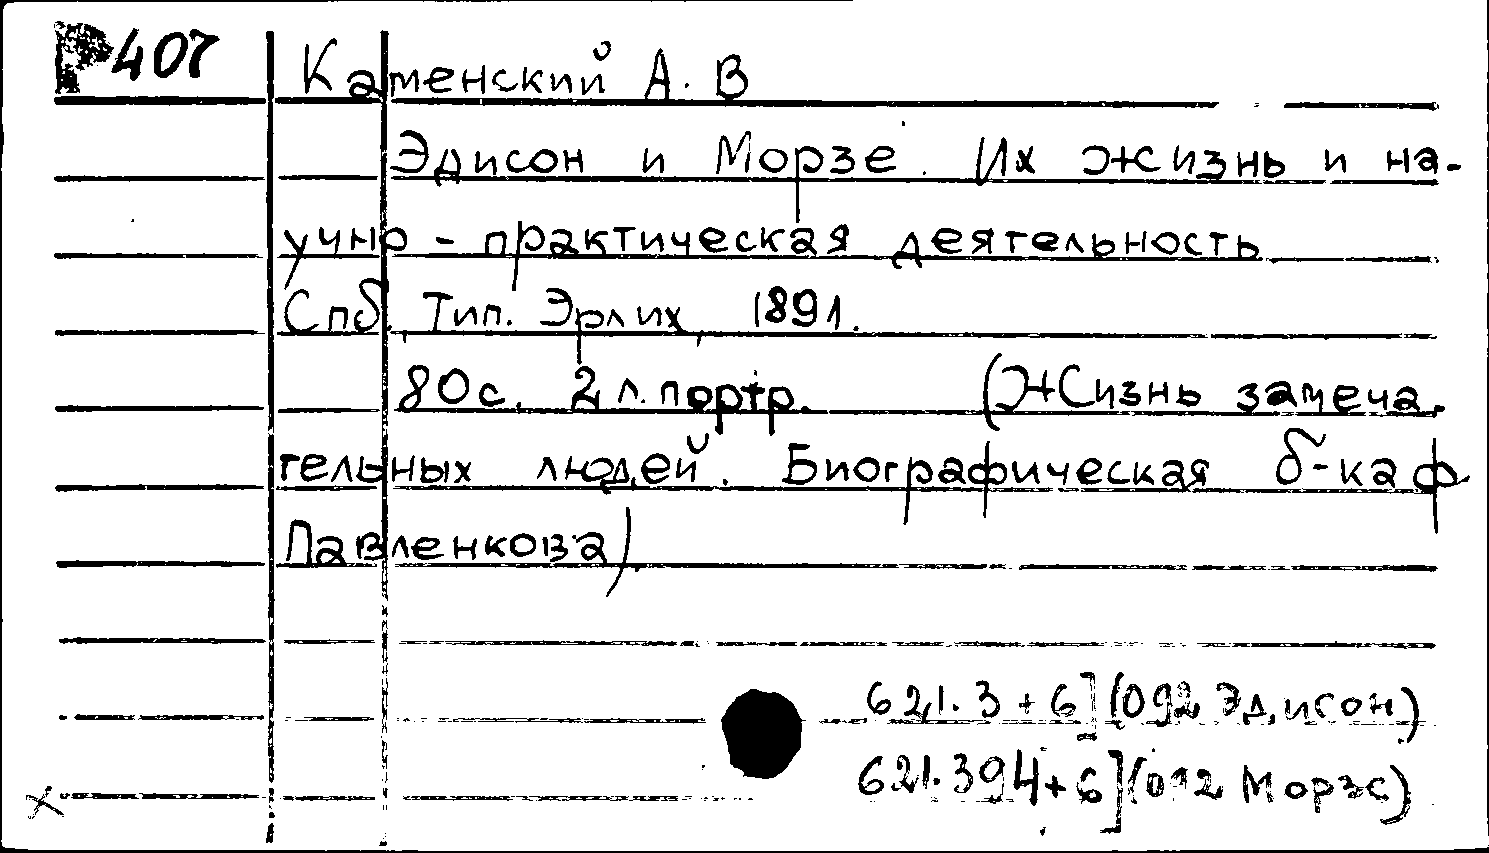 407 Каменский А. В
Эдисон и Морзе. Их жизнь и на-
учно - практическая деятельность
Спб, Тип. Эрлих, 1891.
80с. 2 л. портр. (Жизнь замеча-
тельных людей. Биографическая б-ка Ф.
Павленкова).
621.3 + 6](092 Эдисон)
621.394+6](092 Морзе)